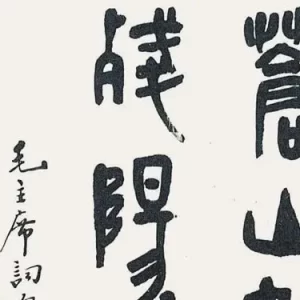 蒼山
殘陽
毛主席詞